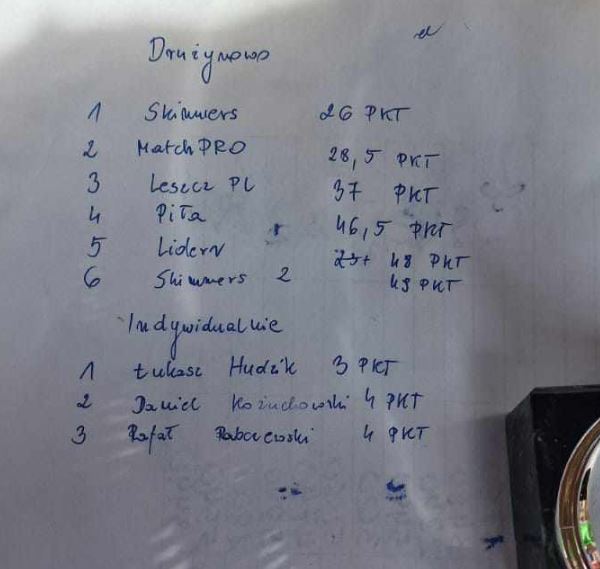 Drużynowo
1 Skimmers 26 PKT
2 Match PRO 28,5 PKT
3 Leszcz PL 37 PKT
4 Piła 46,5 PKT
5 Liderzy 48 PKT
6 Skimmers 2 49 PKT
Indywidualnie
1 Łukasz Hudzik 3 PKT
2 Daniel Kożuchowski 4 PKT
3 Rafał 4 PKT